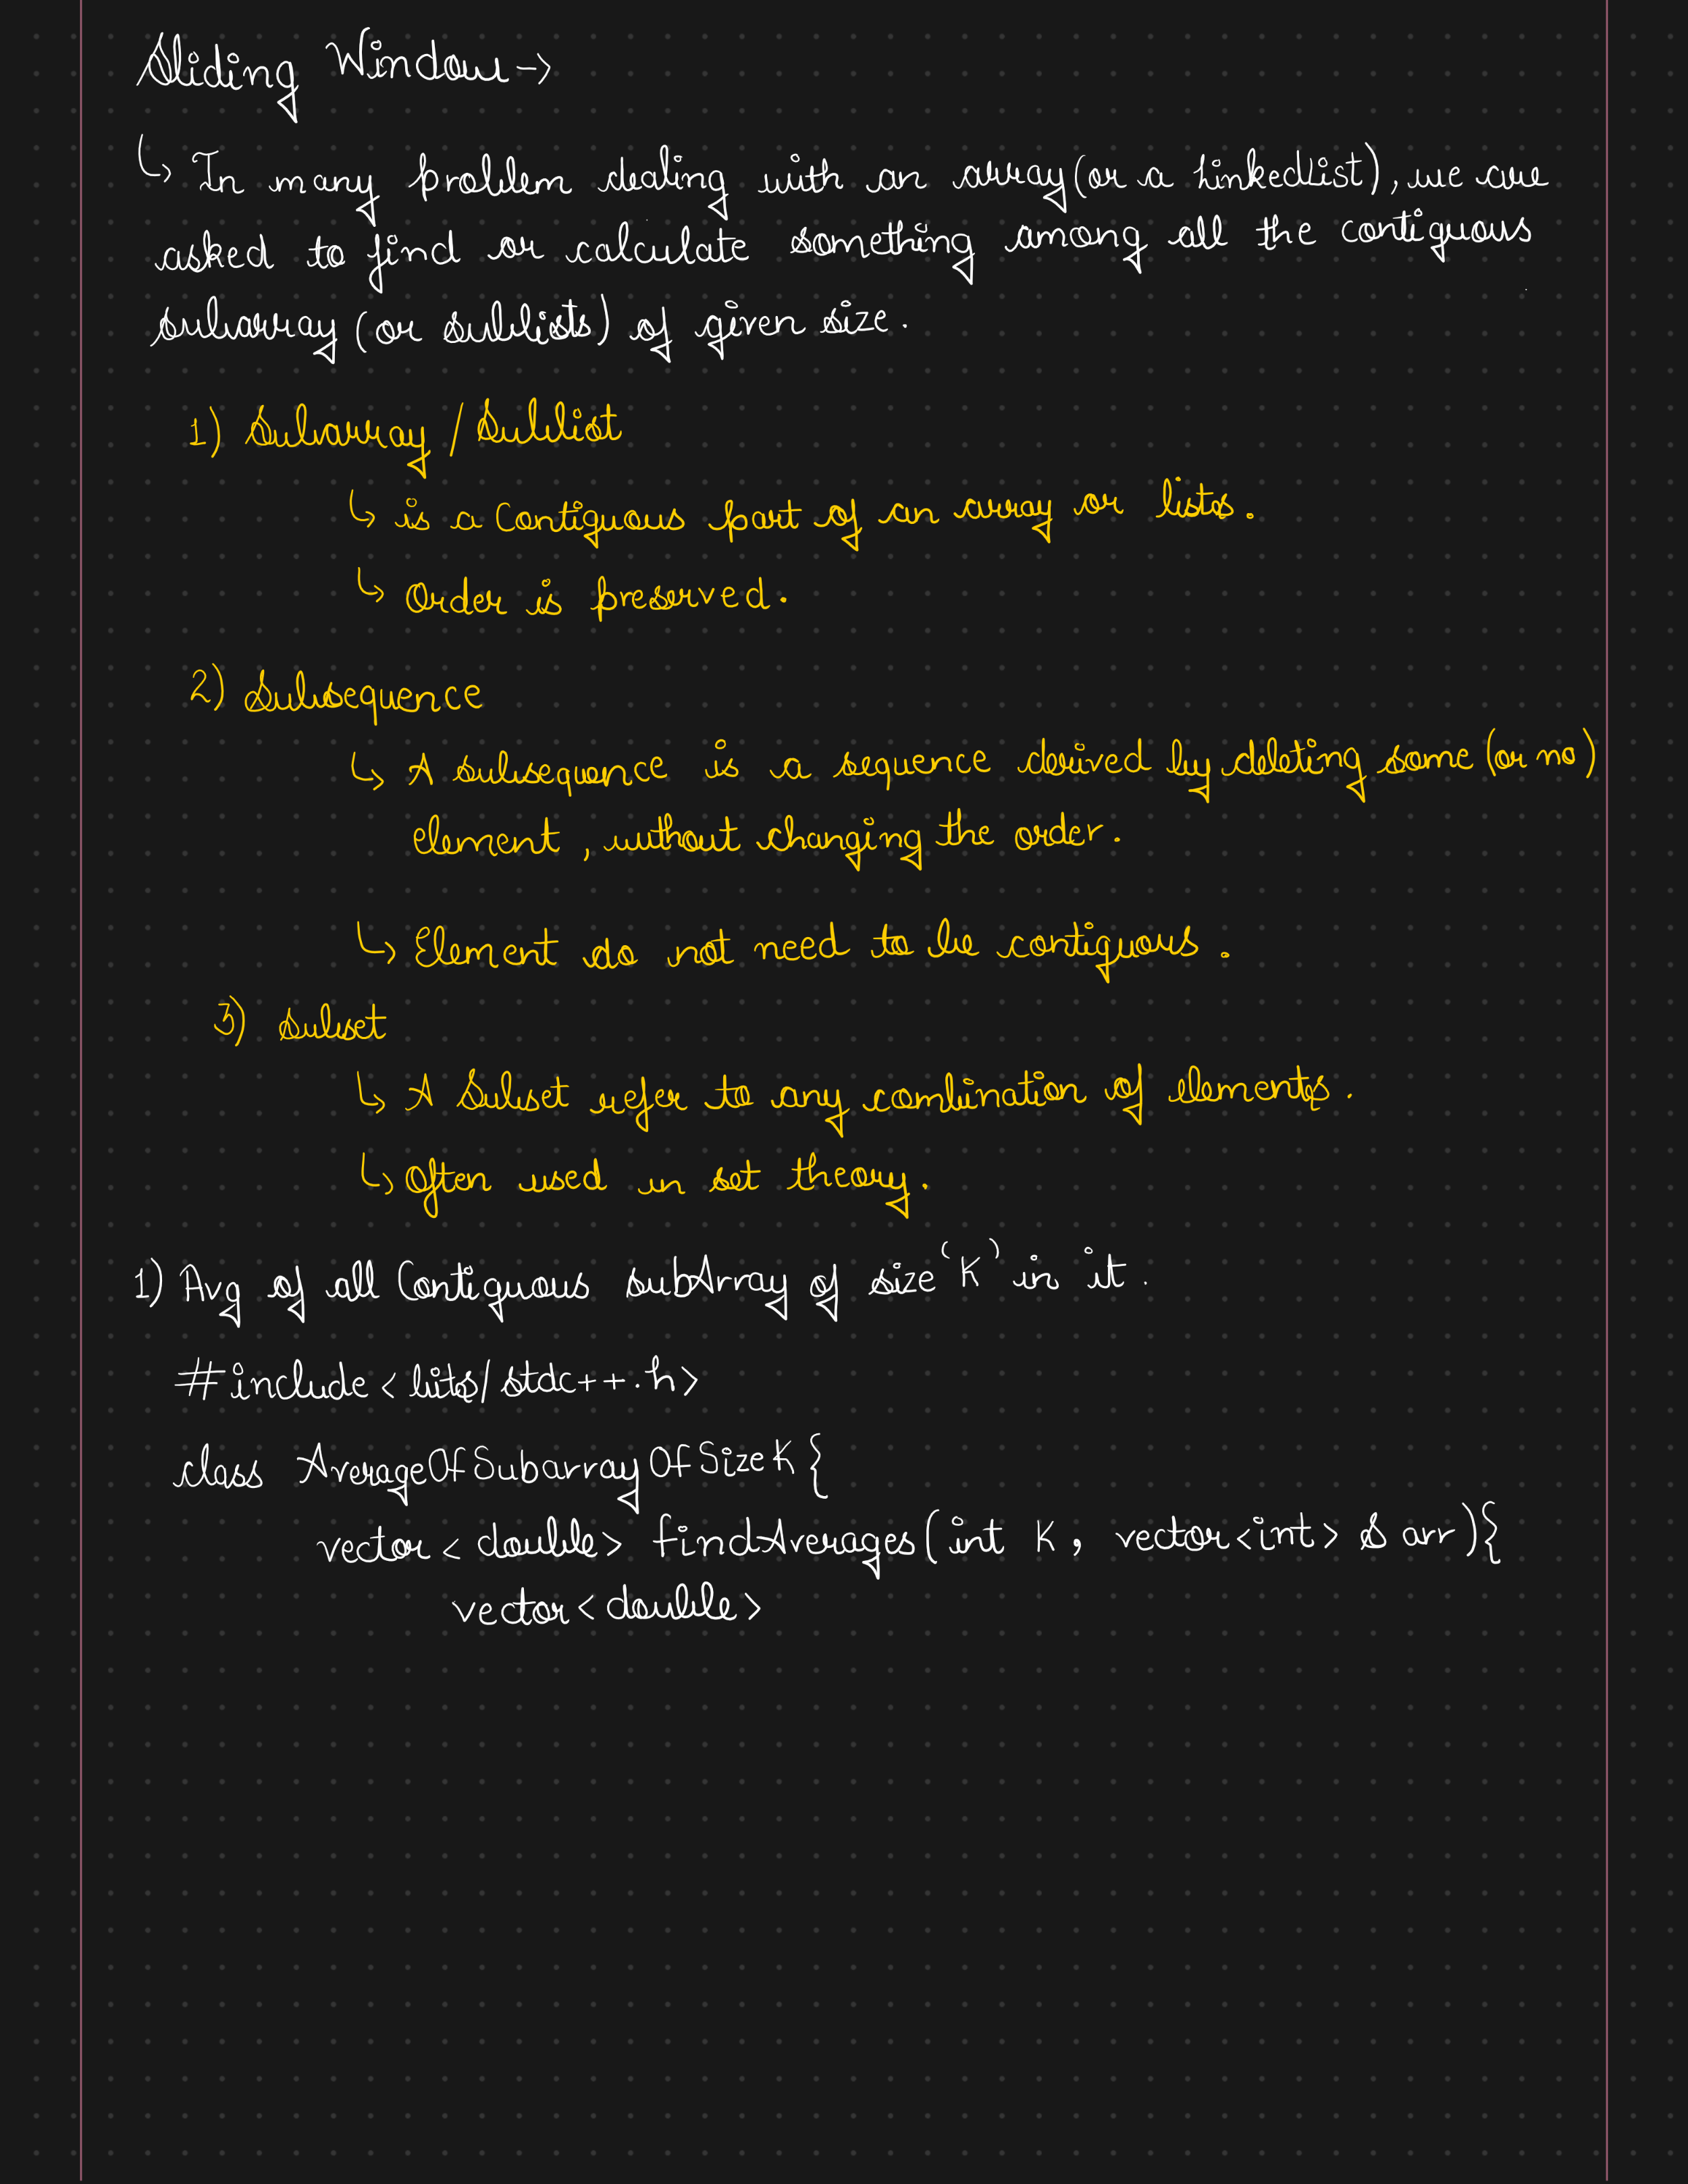 Sliding Window ->
↳ In many problem dealing with an array (or a LinkedList), we are
asked to find or calculate something among all the contiguous
subarray (or sublists) of given size.
1) Subarray / Sublist
↳ is a Contiguous part of an array or lists.
↳ Order is preserved.
2) Subsequence
↳ A subsequence is a sequence derived by deleting some (or no)
element, without changing the order.
↳ Element do not need to be contiguous.
3) Subset
↳ A Subset refer to any combination of elements.
↳ Often used in set theory.
1) Avg of all Contiguous subArray of size 'K' in it.
#include <bits/stdc++.h>
class AverageOfSubarrayOfSizeK {
vector<double> findAverages(int K, vector<int> & arr){
vector<double>